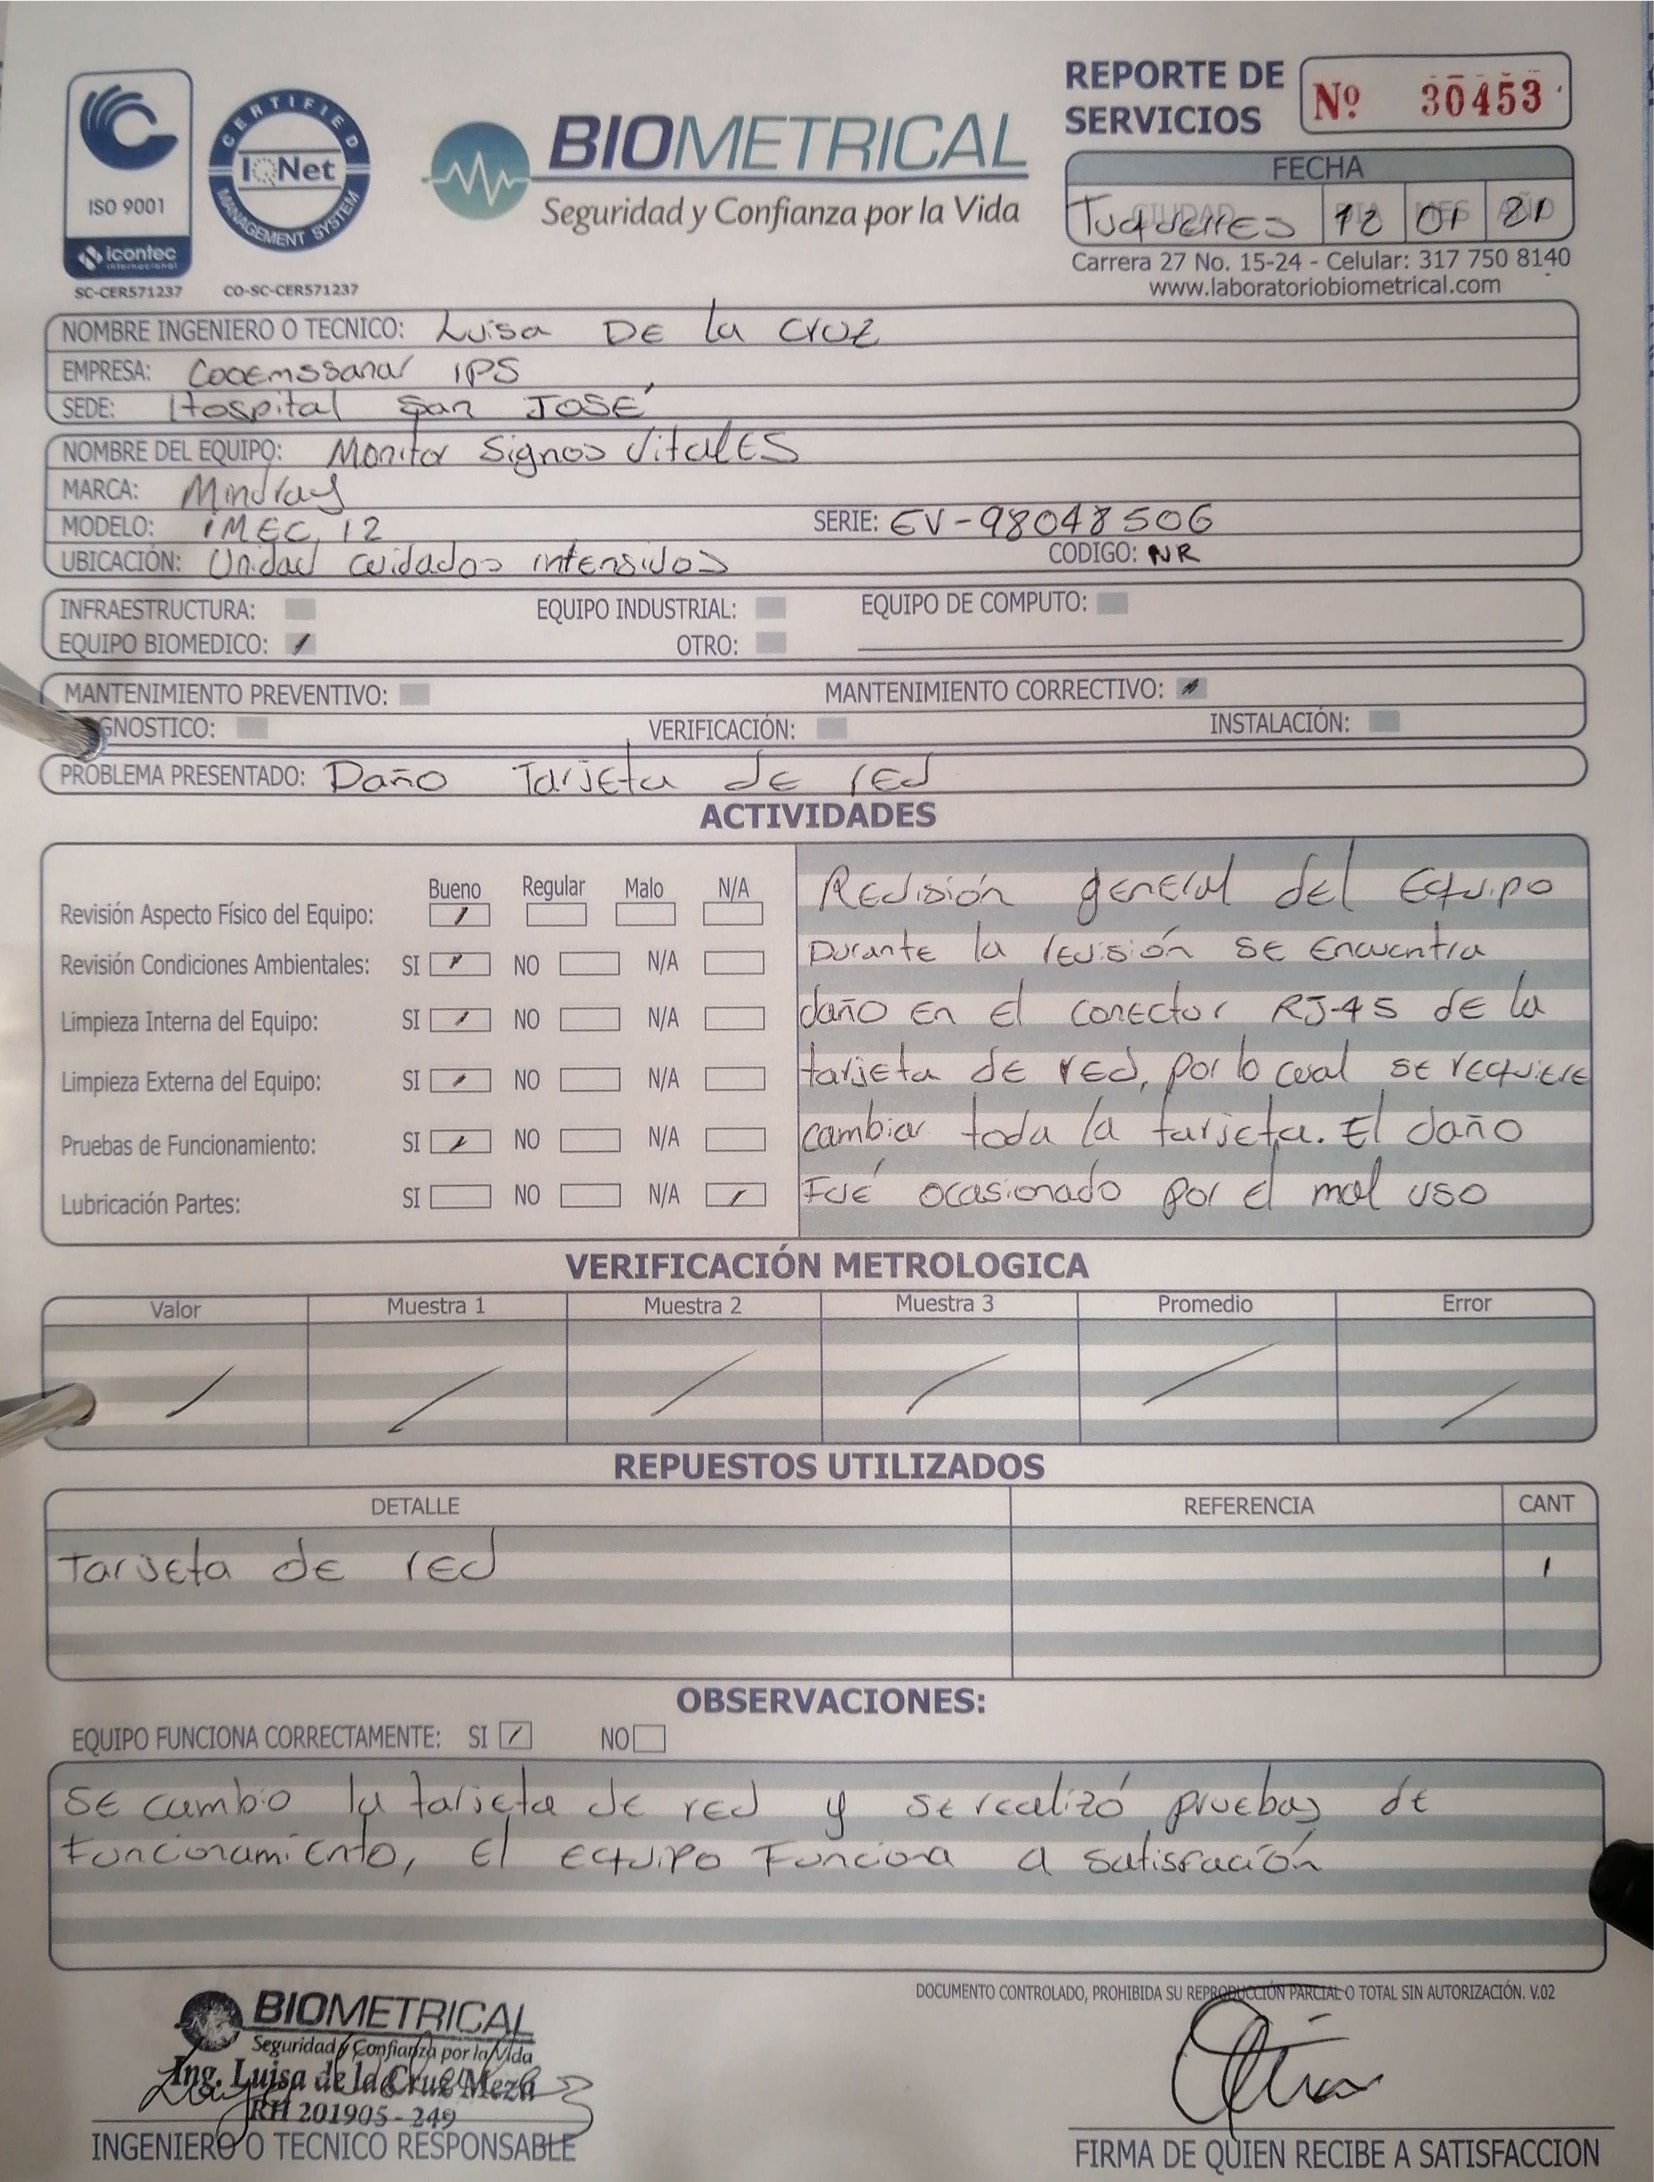 ISO 9001
icontec
internacional
SC-CER571237
CERTIFIED
IQNet
MANAGEMENT SYSTEM
CO-SC-CER571237
BIOMETRICAL
Seguridad y Confianza por la Vida
REPORTE DE
SERVICIOS
Nº 30453
FECHA
CIUDAD DIA MES AÑO
Tuquerres 12 01 21
Carrera 27 No. 15-24 - Celular: 317 750 8140
www.laboratoriobiometrical.com
NOMBRE INGENIERO O TECNICO: Luisa DE la cruz
EMPRESA: Cooemssanar IPS
SEDE: Hospital San JOSÉ
NOMBRE DEL EQUIPO: Monitor Signos VitalES
MARCA: Mindray
MODELO: iMEC 12 SERIE: EV-98048506
UBICACIÓN: Unidad cuidados intensivos CODIGO: NR
INFRAESTRUCTURA: EQUIPO INDUSTRIAL: EQUIPO DE COMPUTO:
EQUIPO BIOMEDICO: OTRO:
MANTENIMIENTO PREVENTIVO: MANTENIMIENTO CORRECTIVO:
GNOSTICO: VERIFICACIÓN: INSTALACIÓN:
PROBLEMA PRESENTADO: Daño Tarjeta de red
ACTIVIDADES
Bueno Regular Malo N/A
Revisión Aspecto Físico del Equipo:
Revisión Condiciones Ambientales: SI NO N/A
Limpieza Interna del Equipo: SI NO N/A
Limpieza Externa del Equipo: SI NO N/A
Pruebas de Funcionamiento: SI NO N/A
Lubricación Partes: SI NO N/A
Revisión general del Equipo
Durante la revisión se encuentra
daño en el conector RJ-45 de la
tarjeta de red, por lo cual se requiere
cambiar toda la tarjeta. El daño
Fué ocasionado por el mal uso
VERIFICACIÓN METROLOGICA
Valor Muestra 1 Muestra 2 Muestra 3 Promedio Error
REPUESTOS UTILIZADOS
DETALLE REFERENCIA CANT
Tarjeta de red 1
OBSERVACIONES:
EQUIPO FUNCIONA CORRECTAMENTE: SI NO
Se cambio la tarjeta de red y se realizó pruebas de
funcionamiento, el equipo Funciona a satisfación
DOCUMENTO CONTROLADO, PROHIBIDA SU REPRODUCCIÓN PARCIAL O TOTAL SIN AUTORIZACIÓN. V.02
BIOMETRICAL
Seguridad y Confianza por la Vida
Ing. Luisa de la Cruz Meza
RH 201905 - 249
INGENIERO O TECNICO RESPONSABLE
FIRMA DE QUIEN RECIBE A SATISFACCION